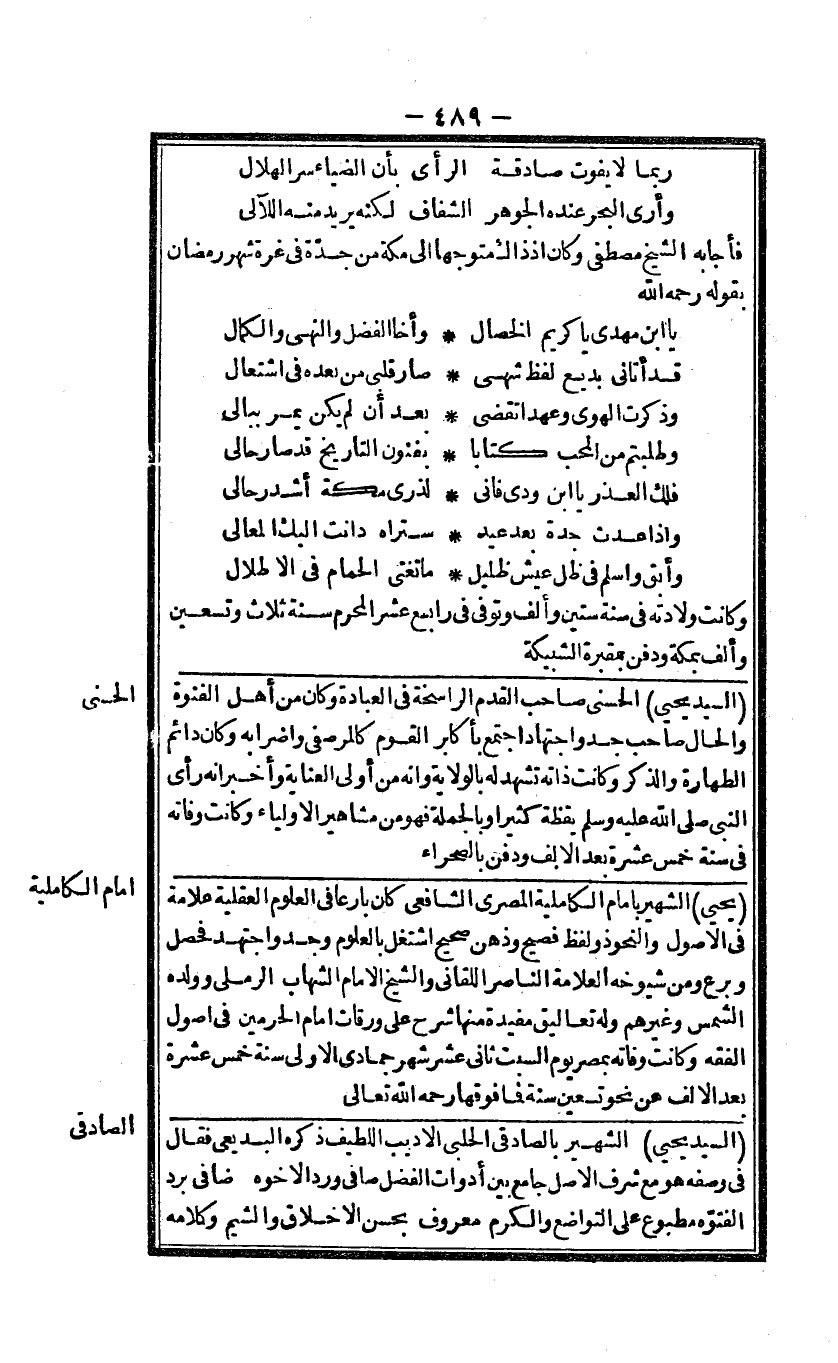 — ٤٨٩ —
ربما لا يفوت صادقة الرأى بأن الضياء سر الهلال
وأرى البحر عنده الجوهر الشفاف لكنه يريد منه اللآلى
فأجابه الشيخ مصطفى وكان اذ ذاك متوجها الى مكة من جدّة فى غرة شهر رمضان
بقوله رحمه الله
يا ابن مهدى يا كريم الخصال * وأخا الفضل والنهى والكمال
قد أتانى بديع لفظ شهى * صار قلبى من بعده فى اشتعال
وذكرت الهوى وعهدا تقضى * بعد أن لم يكن يمر ببالى
وطلبتم من المحب كتابا * بفنون التاريخ قد صار حالى
فلك العذر يا ابن ودى فانى * لذرى مكة أشد رحالى
واذا عدت جدة بعد عيد * ستراه دانت اليك المعالى
وأبق واسلم فى ظل عيش ظليل * ما تغنى الحمام فى الاطلال
وكانت ولادته فى سنة ستين وألف وتوفى فى رابع عشر المحرم سنة ثلاث وتسعين
وألف بمكة ودفن بمقبرة الشبيكة
الحسنى
(السيد يحيى) الحسنى صاحب القدم الراسخة فى العبادة وكان من أهل الفتوة
والحال صاحب جد واجتهاد اجتمع بأكابر القوم كالمرصفى واضرابه وكان دائم
الطهارة والذكر وكانت ذاته تشهد له بالولاية وانه من أولى العناية وأخبر انه رأى
النبى صلى الله عليه وسلم يقظة كثيرا وبالجملة فهو من مشاهير الاولياء وكانت وفاته
فى سنة خمس عشرة بعد الالف ودفن بالصحراء
امام الكاملية
(يحيى) الشهير بامام الكاملية المصرى الشافعى كان بارعا فى العلوم العقلية علامة
فى الاصول والنحو ذو لفظ فصيح وذهن صحيح اشتغل بالعلوم وجد واجتهد فحصل
وبرع ومن شيوخه العلامة الناصر اللقانى والشيخ الامام الشهاب الرملى وولده
الشمس وغيرهم وله تعاليق مفيدة منها شرح على ورقات امام الحرمين فى اصول
الفقه وكانت وفاته بمصر يوم السبت ثانى عشر شهر جمادى الاولى سنة خمس عشرة
بعد الالف عن نحو تسعين سنة فما فوقها رحمه الله تعالى
الصادقى
(السيد يحيى) الشهير بالصادقى الحلبى الاديب اللطيف ذكره البديعى فقال
فى وصفه هو مع شرف الاصل جامع بين أدوات الفضل صافى ورد الاخوه ضافى برد
الفتوّه مطبوع على التواضع والكرم معروف بحسن الاخلاق والشيم وكلامه